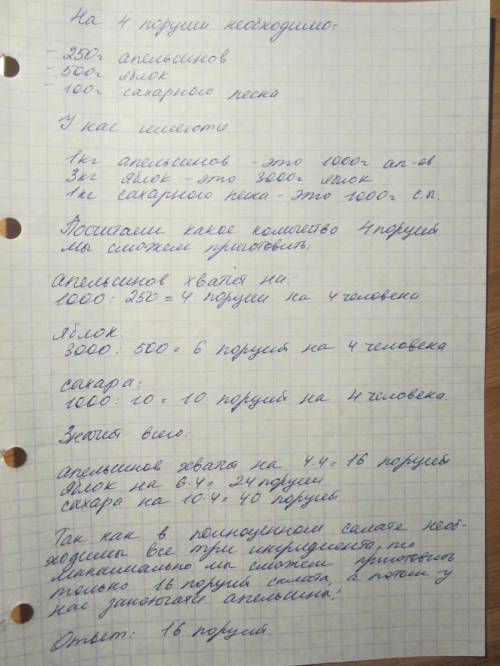 На 4 порции необходимо:
- 250г апельсинов
- 500г яблок
- 100г сахарного песка
У нас имеются
1кг апельсинов - это 1000г ап-ов
3кг яблок - это 3000г яблок
1кг сахарного песка - это 1000г с.п.
Посчитаем какое количество 4 порций
мы сможем приготовить:
апельсинов хватит на:
1000 : 250 = 4 порции на 4 человека
яблок:
3000 : 500 = 6 порций на 4 человека
сахара:
1000 : 10 = 10 порций на 4 человека.
Значит всего:
апельсинов хватит на 4·4 = 16 порций
яблок на 6·4 = 24 порции
сахара на 10·4 = 40 порций
Так как в полноценном салате необ-
ходимы все три ингридиента, то
максимально мы сможем приготовить
только 16 порций салата, а потом у
нас закончатся апельсины!
Ответ: 16 порций.